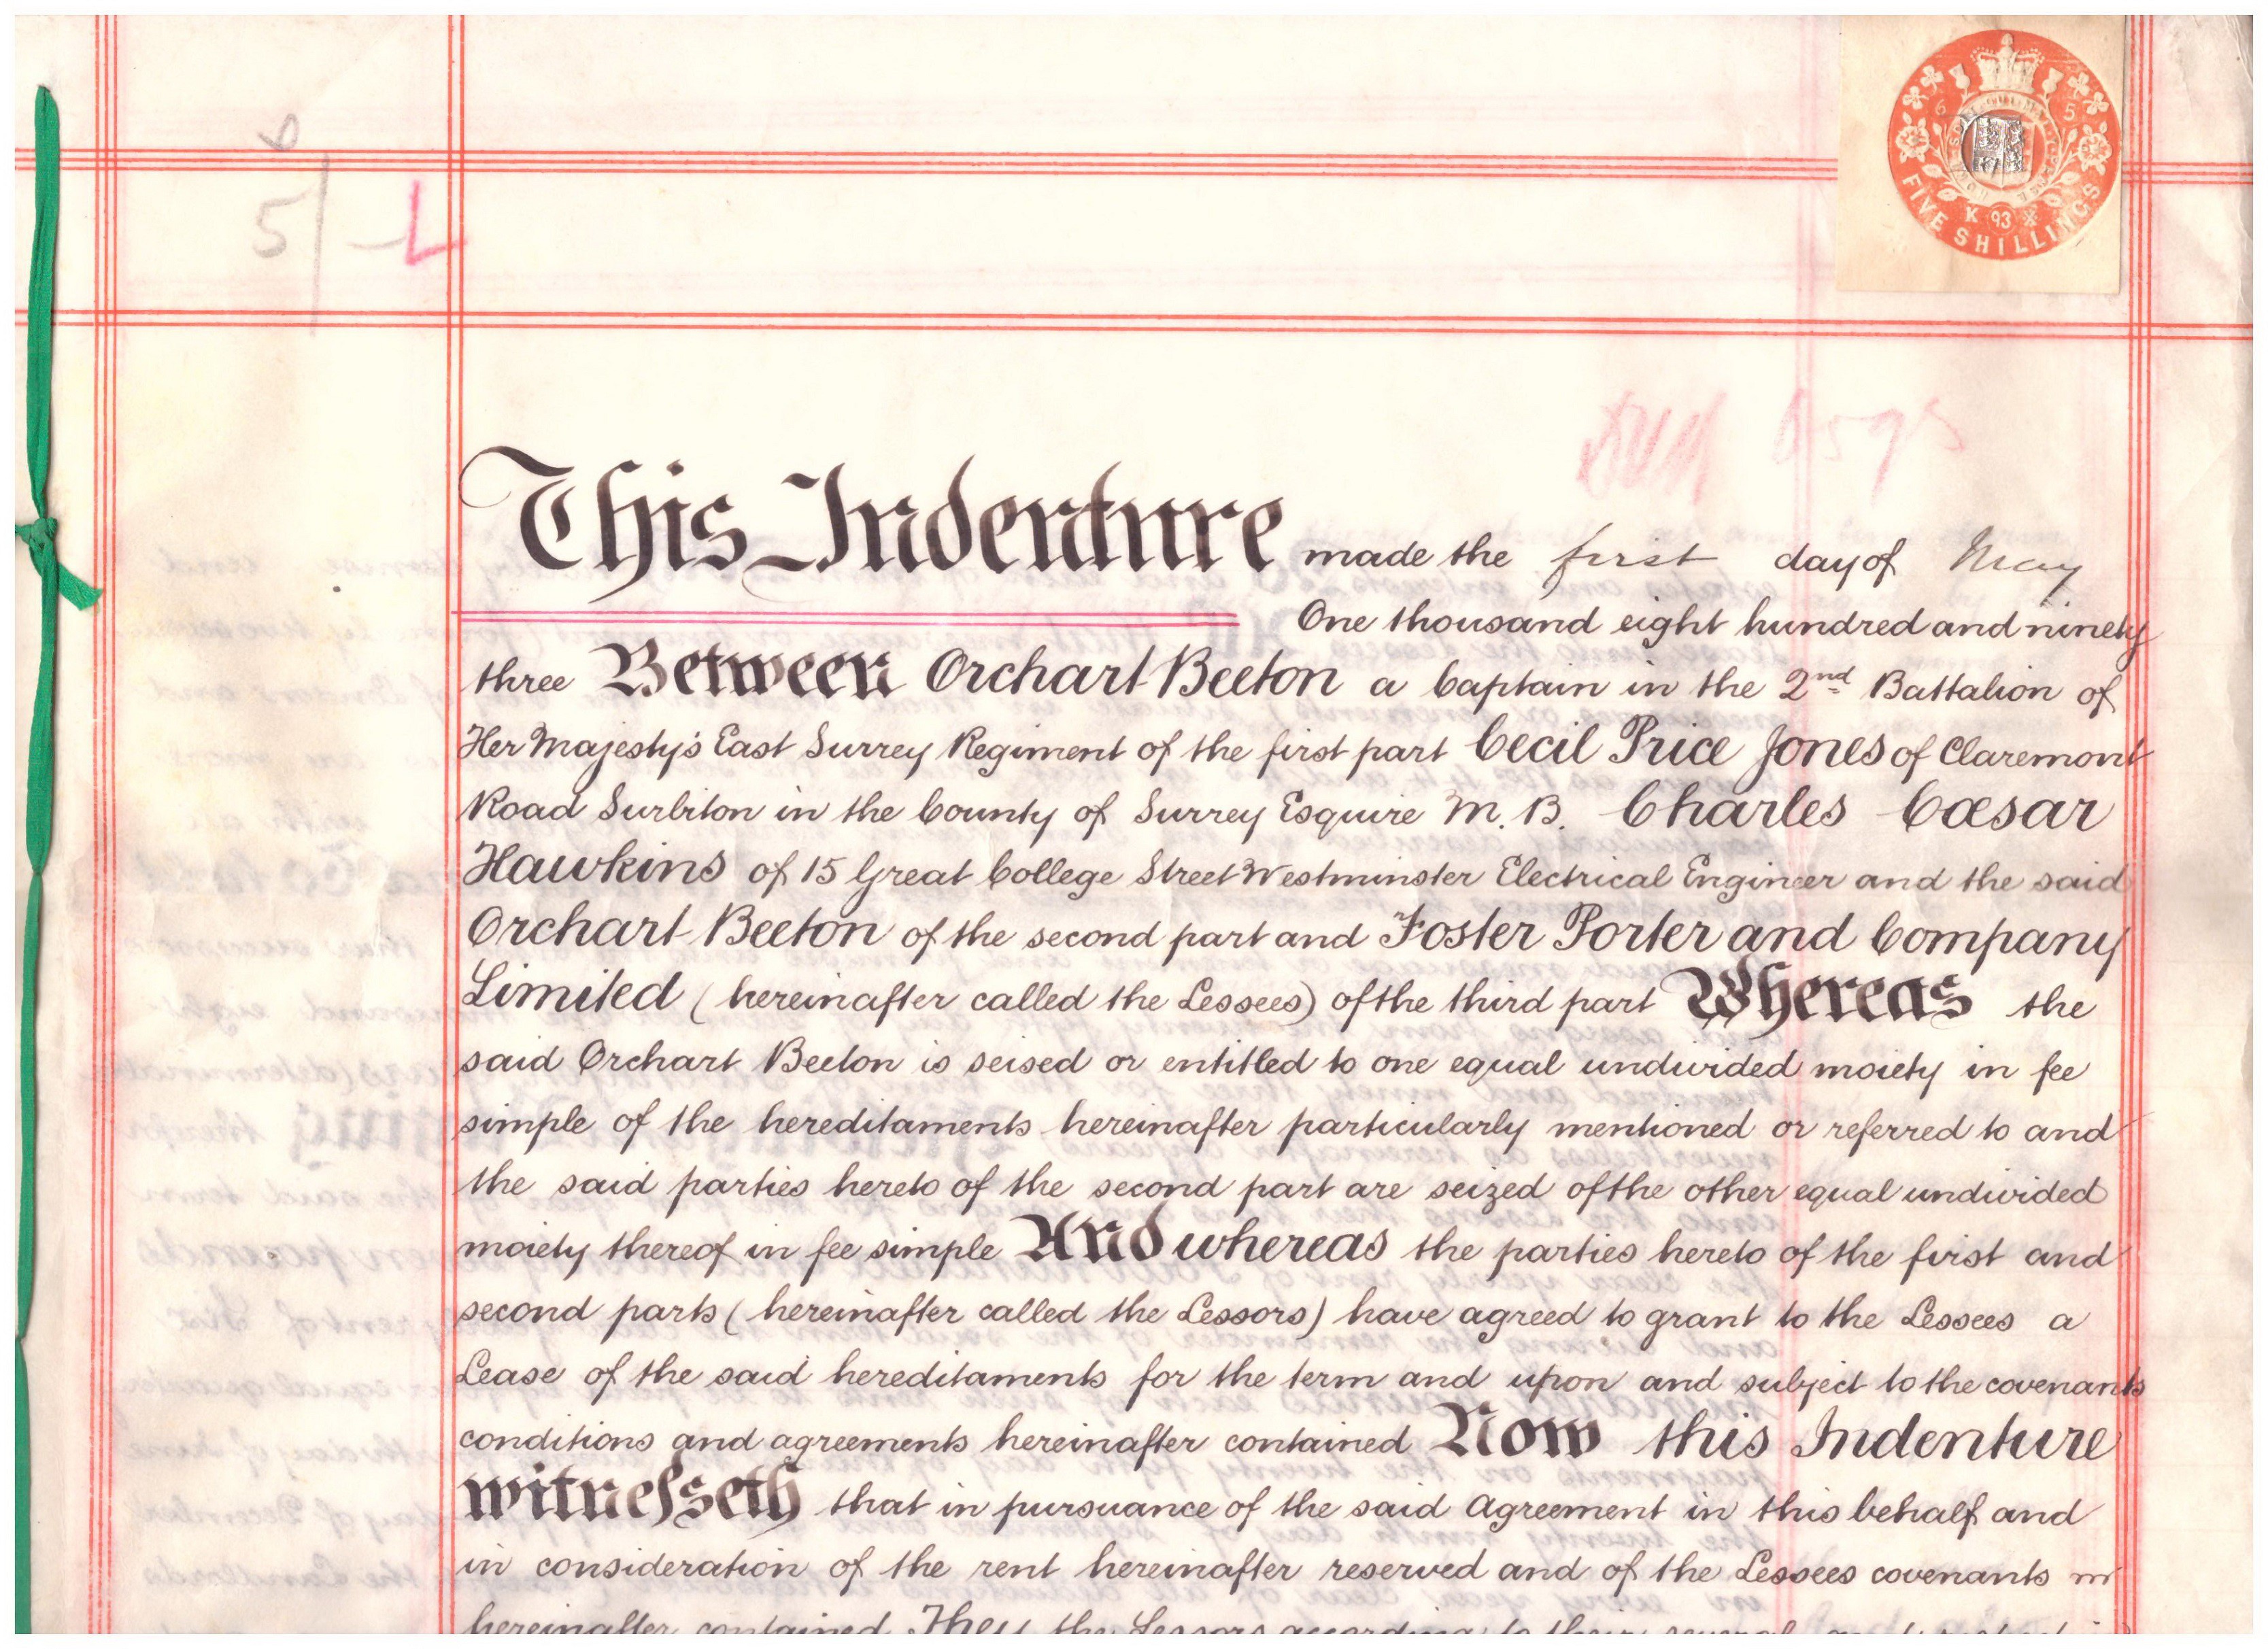 5/-
6 5
K 93
FIVE SHILLINGS
This Indenture made the first day of May
One thousand eight hundred and ninety
three Between Orchart Beeton a Captain in the 2nd Battalion of
Her Majesty's East Surrey Regiment of the first part Cecil Price Jones of Claremont
Road Surbiton in the County of Surrey Esquire M.B. Charles Cæsar
Hawkins of 15 Great College Street Westminster Electrical Engineer and the said
Orchart Beeton of the second part and Foster Porter and Company
Limited (hereinafter called the Lessees) of the third part Whereas the
said Orchart Beeton is seised or entitled to one equal undivided moiety in fee
simple of the hereditaments hereinafter particularly mentioned or referred to and
the said parties hereto of the second part are seized of the other equal undivided
moiety thereof in fee simple And whereas the parties hereto of the first and
second parts (hereinafter called the Lessors) have agreed to grant to the Lessees a
Lease of the said hereditaments for the term and upon and subject to the covenants
conditions and agreements hereinafter contained Now this Indenture
witnesseth that in pursuance of the said Agreement in this behalf and
in consideration of the rent hereinafter reserved and of the Lessees covenants
hereinafter contained They the Lessors according to their several